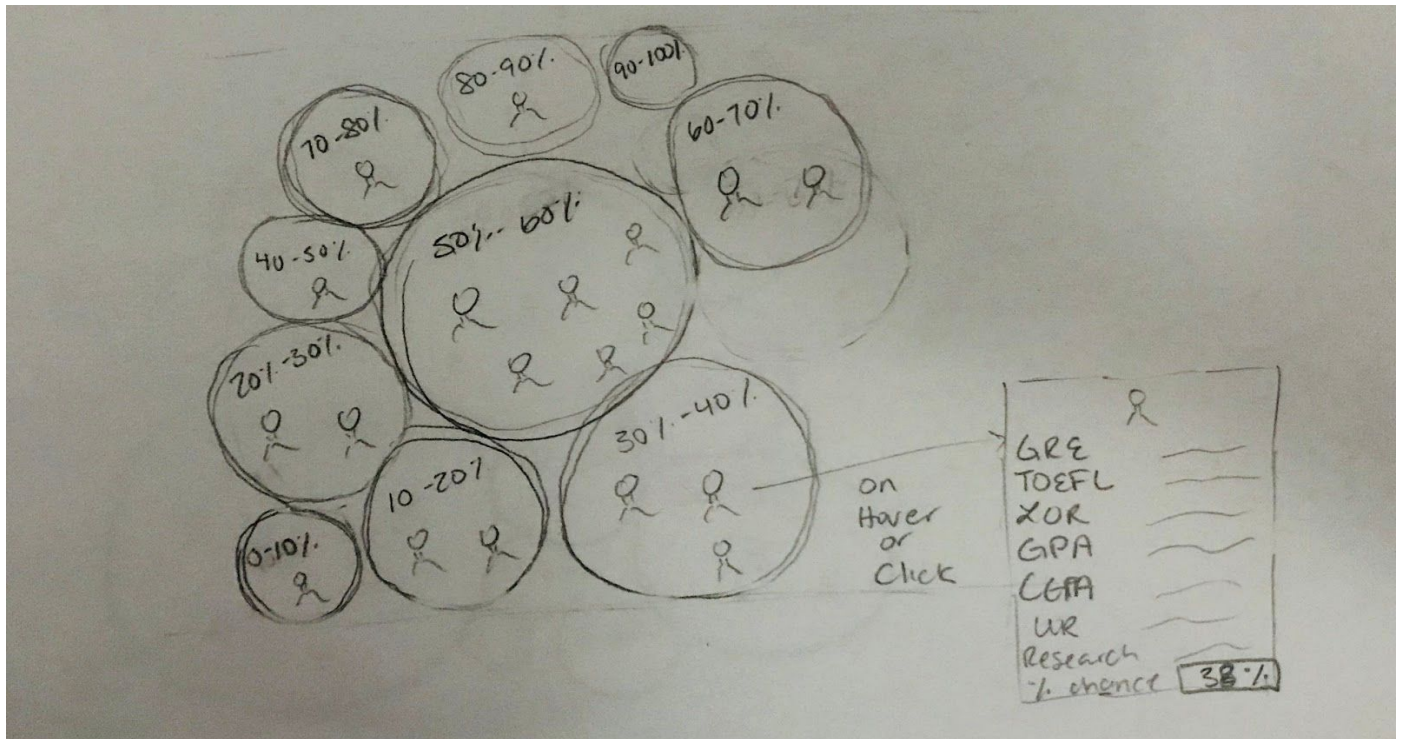 80-90%
90-100%
70-80%
60-70%
50%-60%
40-50%
20%-30%
30%-40%
10-20%
0-10%
on
Hover
or
Click
GRE
TOEFL
LOR
GPA
CGPA
UR
Research
% chance 38%